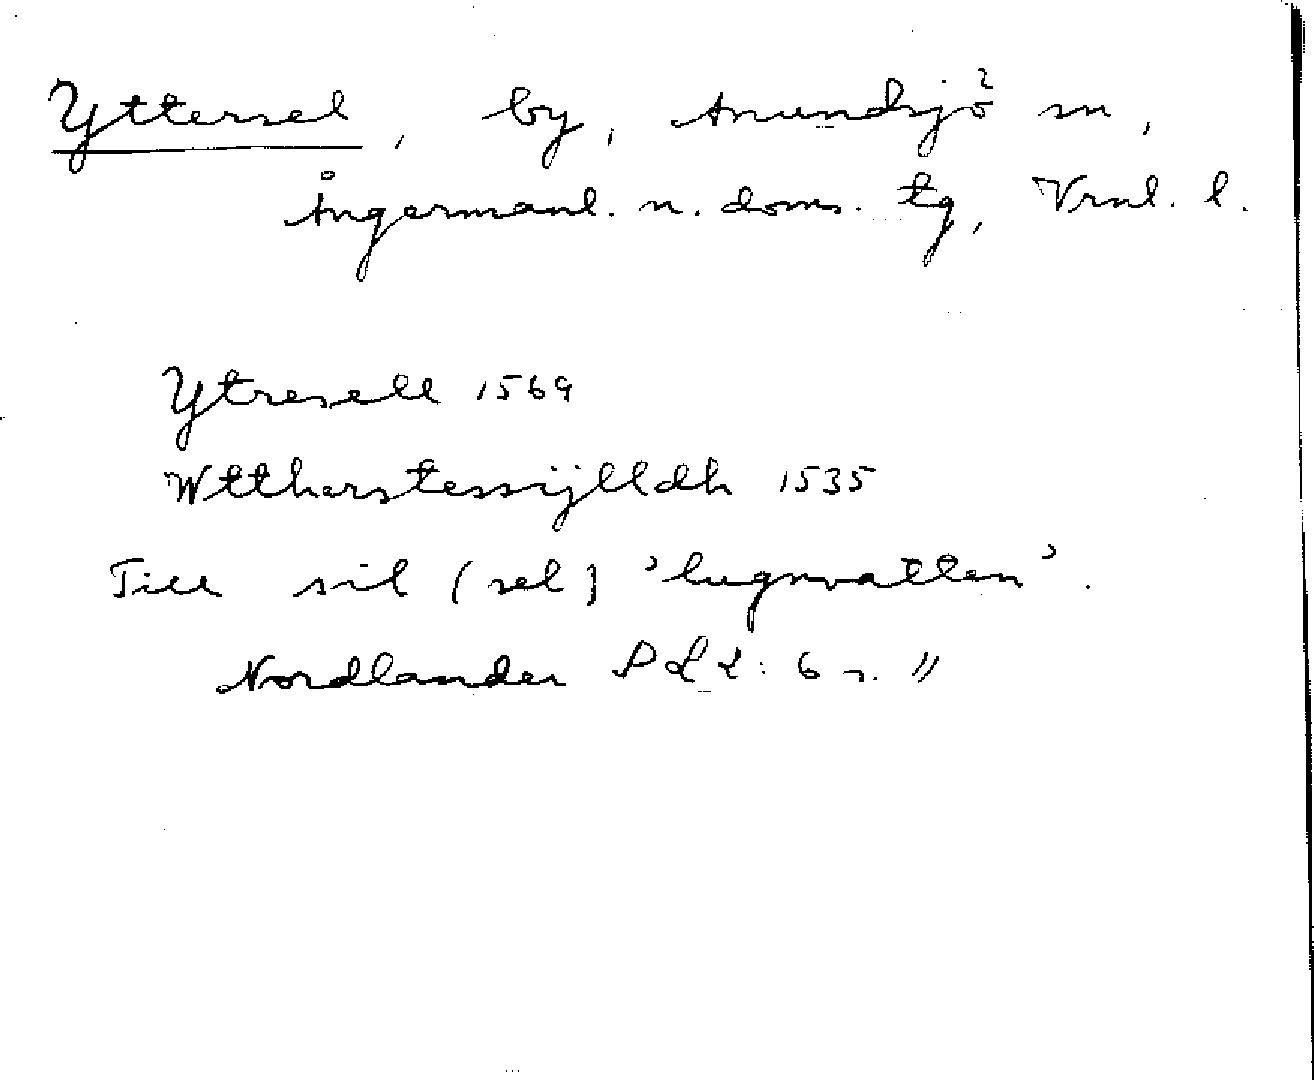 Yttersel, by, Anundsjö sn,
Ångermanl. n. doms. tg, Vrnl. l.
Ytresell 1569
Wttherstessijlldh 1535
Till sil (sel) 'lugnvatten'.
Nordlander 6 s. 11